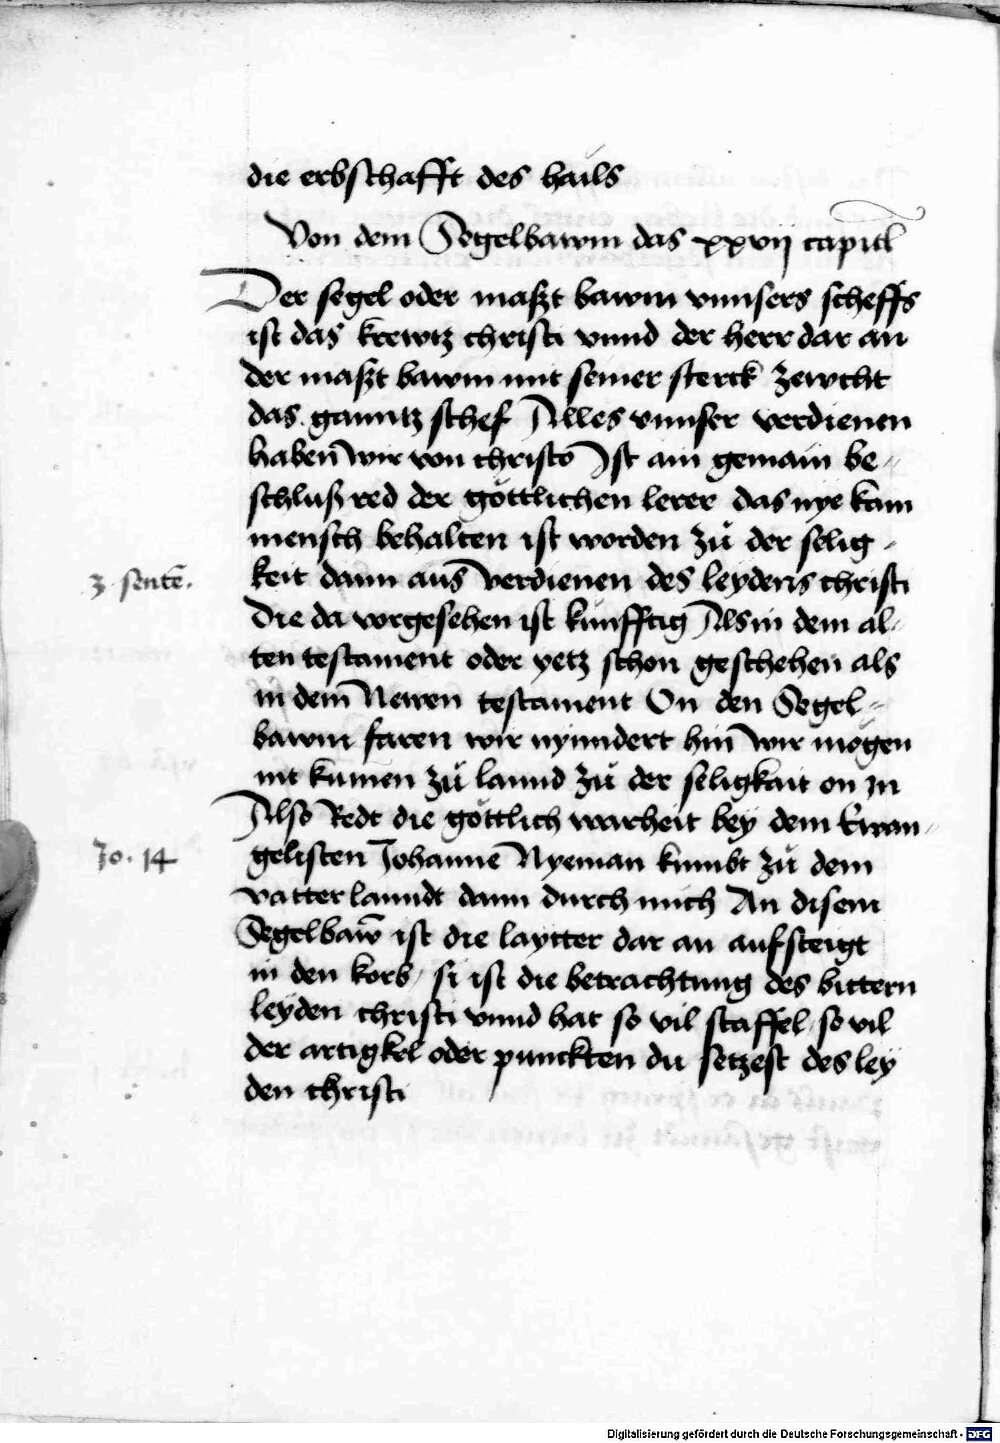 die erbschafft des hails
Von dem Segelbawm das xxvij capitl
Der segel oder maszt bawm vnnsers scheffs
ist das krewtz christi vnnd der herr dar an
der maszt bawm mit seiner sterck zewcht
das ganntz schef Alles vnnser verdienen
haben wir von christo Ist ain gemain be=
schlusz red der göttlichen lerer das nye kain
mensch behalten ist worden zů der selig=
3. sentē.
keit dann aus verdienen des leydens christi
die da vorgesehen ist künfftig Als in dem al=
ten testament oder yetz schon geschehen als
in dem Newen testament On den Segel=
bawm faren wir nynndert hin wir mögen
nit kumen zů lannd zů der seligkait on in
Also Redt die göttlich warheit bey dem Ewan=
Jo. 14
gelisten Johanne Nyeman kumbt zů dem
vatterlanndt dann durch mich An disem
Segelbaw̄ ist die laytter dar an aufsteigt
in den korb, si ist die betrachtung des bittern
leyden christi vnnd hat so vil staffel, so vil
der artigkel oder punckten du setzest des ley
den christi
Digitalisierung gefördert durch die Deutsche Forschungsgemeinschaft - DFG